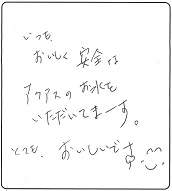 いつも、
おいしく 安全な
アクアスのお水を
いただいてまーす。
とても、おいしいです